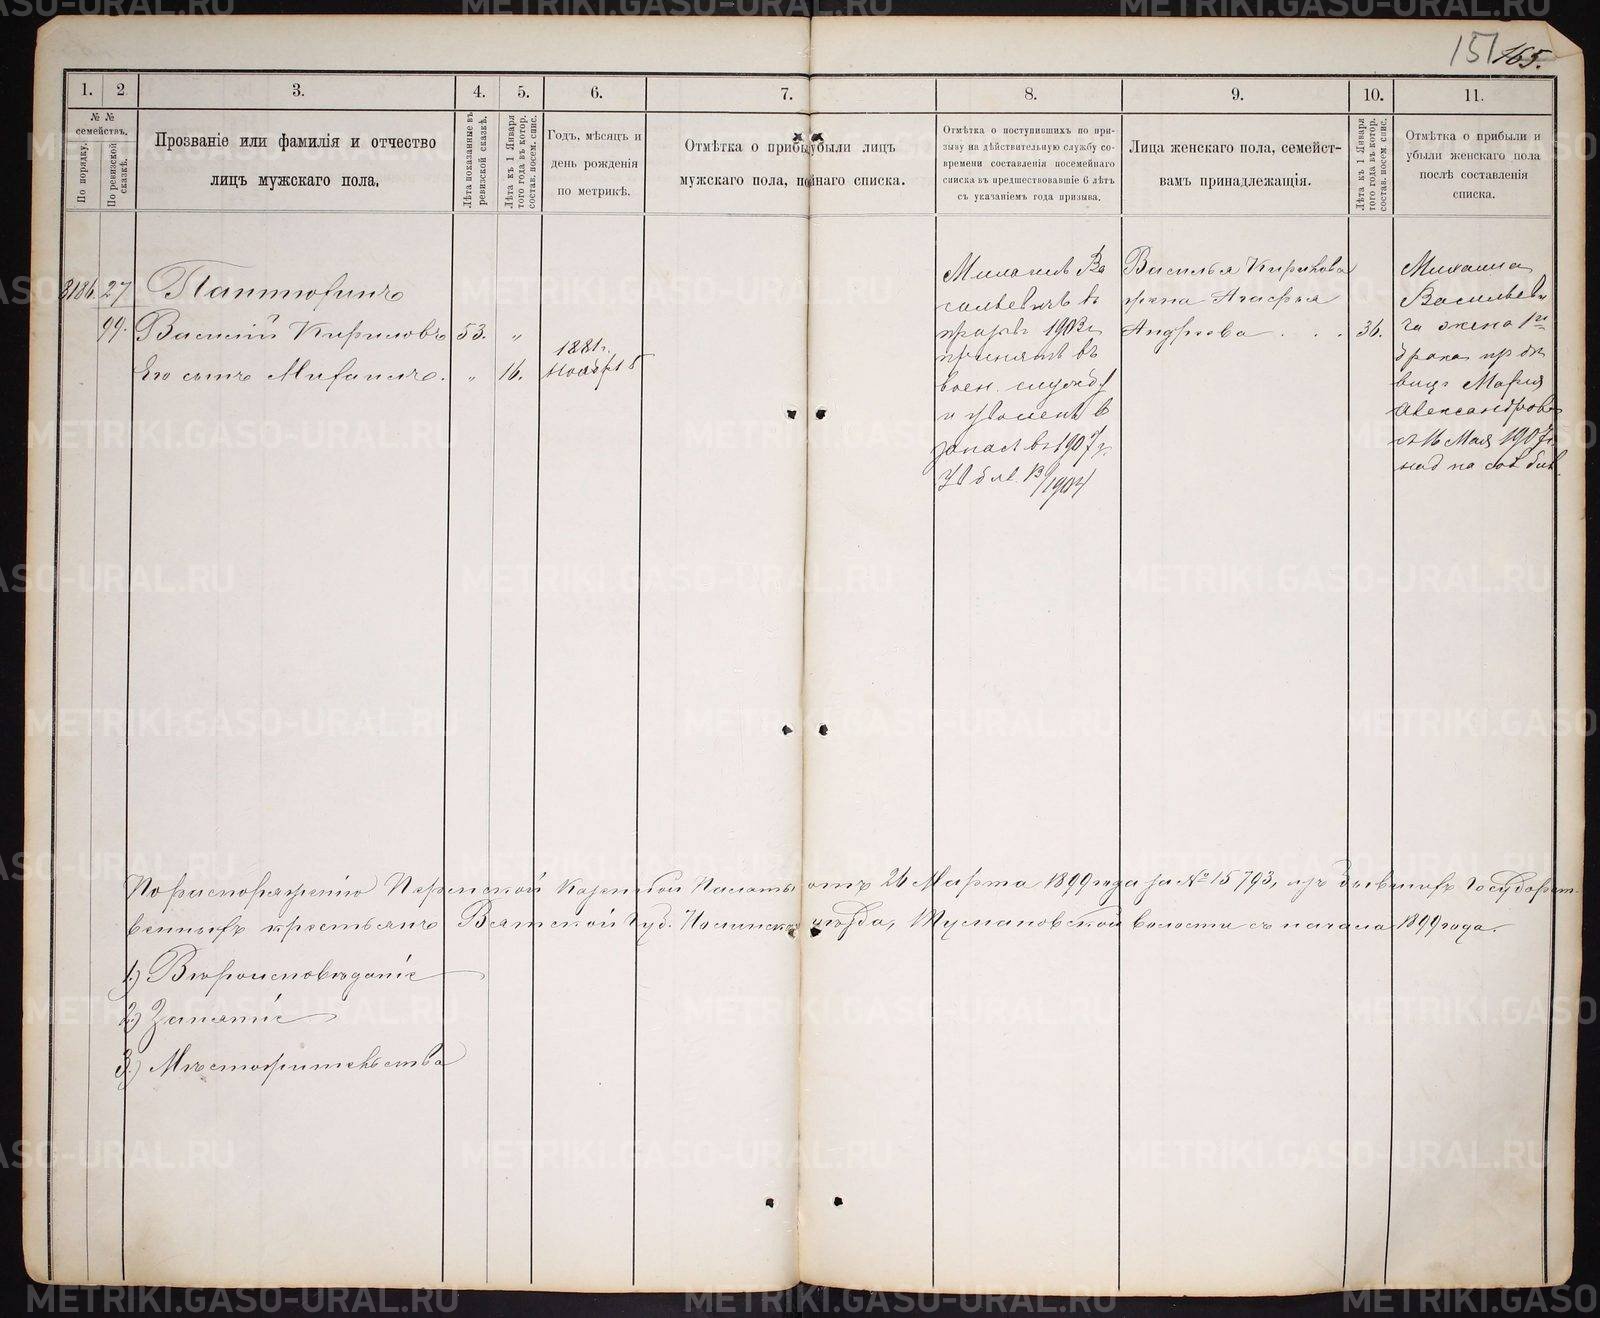 151 165.
1. 2 3. 4. 5. 6. 7. 8. 9. 10. 11.
№ №
семействъ.
По порядку.
По ревизской
сказкѣ.
Прозваніе или фамилія и отчество
лицъ мужскаго пола.
Лѣта показанные въ
ревизской сказкѣ.
Лѣта къ 1 Января
того года въ котор.
состав. посем. спис.
Годъ, мѣсяцъ и
день рожденія
по метрикѣ.
Отмѣтка о прибы убыли лицъ
мужскаго пола, по наго списка.
Отмѣтка о поступившихъ по при-
зыву на дѣйствительную службу со-
времени составленія посемейнаго
списка въ предшествовавшіе 6 лѣтъ
съ указаніемъ года призыва.
Лица женскаго пола, семейст-
вамъ принадлежащія.
Лѣта къ 1 Января
того года въ котор.
состав. посем. спис.
Отмѣтка о прибыли и
убыли женскаго пола
послѣ составленія
списка.
3186. 27
99.
Василій Кириловъ 53. "
Его сынъ Михаилъ. " 16.
1881г.
Ноября 8
Михаилъ Ва
сильевичъ въ
1903г
принятъ въ
воен. службу
и уволенъ в
запас въ 1907г.
1907
Василья Кирилова
жена Агафья
Андреева . . . 36.
Михаила
Васильеви
ча жена 1го
брака
Мария
Александрова
съ 16 Мая 1907г.
По распоряженію Пермской Казенной Палаты отъ 26 Марта 1899 года за № 15793, изъ бывшихъ Государст-
венныхъ крестьянъ Вятской Губ. Нолинска уѣзда, волости съ начала 1899 года.
1.) Вѣроисповѣданіе
2.) Занятіе
3.) Мѣстожительства
METRIKI.GASO-URAL.RU